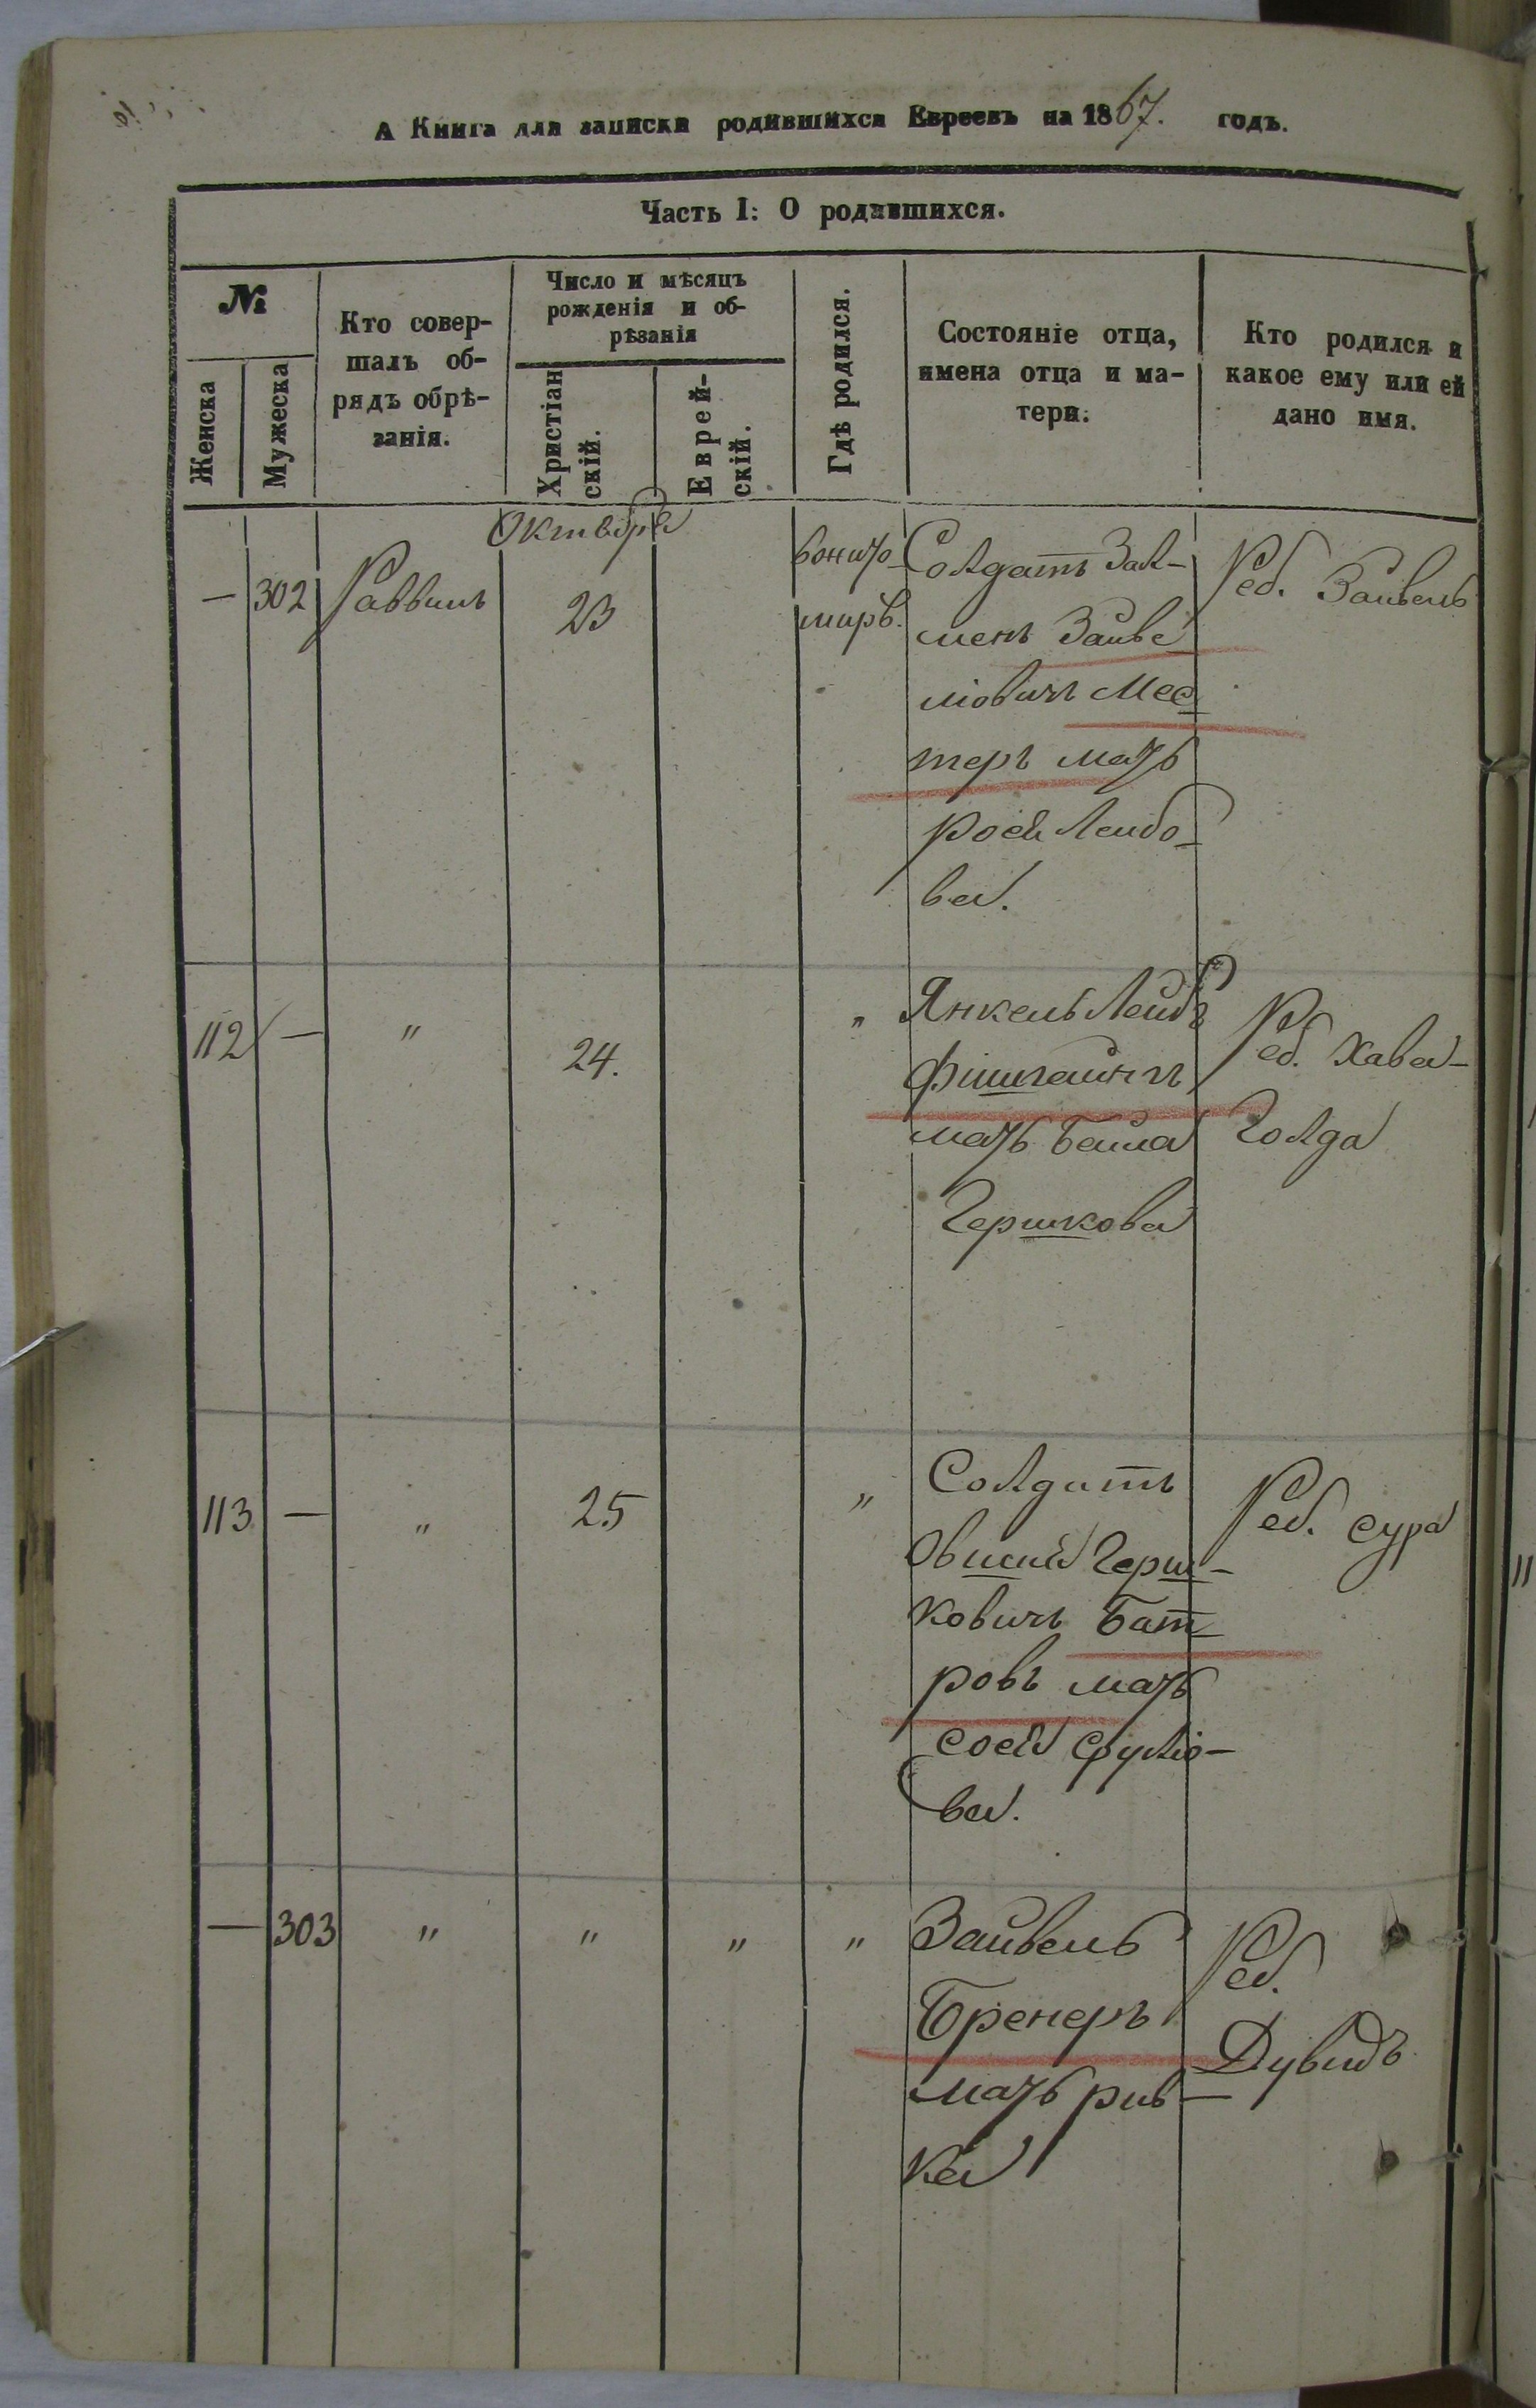 А Книга для записки родившихся Евреевъ на 1867. годъ.
Часть I: О родившихся.
№
Женска
Мужеска
Кто совер-
шалъ об-
рядъ обрѣ-
занія.
Число и мѣсяцъ
рожденія и об-
рѣзанія
Христіан
скій.
Еврей-
скій.
Гдѣ родился.
Состояніе отца,
имена отца и ма-
тери.
Кто родился и
какое ему или ей
дано имя.
Октября
— 302 Раввинъ 23
вжито-
мирѣ.
Солдатъ Зал-
менъ Зайве
ліовичъ Мес
теръ мать
Рося Лейбо-
ва.
Реб. Зайвель
112 — " 24. "
Янкель Лейбъ
Фишгайнъ
мать Бейла
Гершкова
Реб. Хава-
Голда
113 — " 25 "
Солдатъ
Овший Герш-
ковичъ Бат
ровъ мать
Сося Сруліо-
ва.
Реб. Сура
— 303 " " " "
Зайвель
Бренеръ
мать Рив-
ка
Реб.
Дувидъ